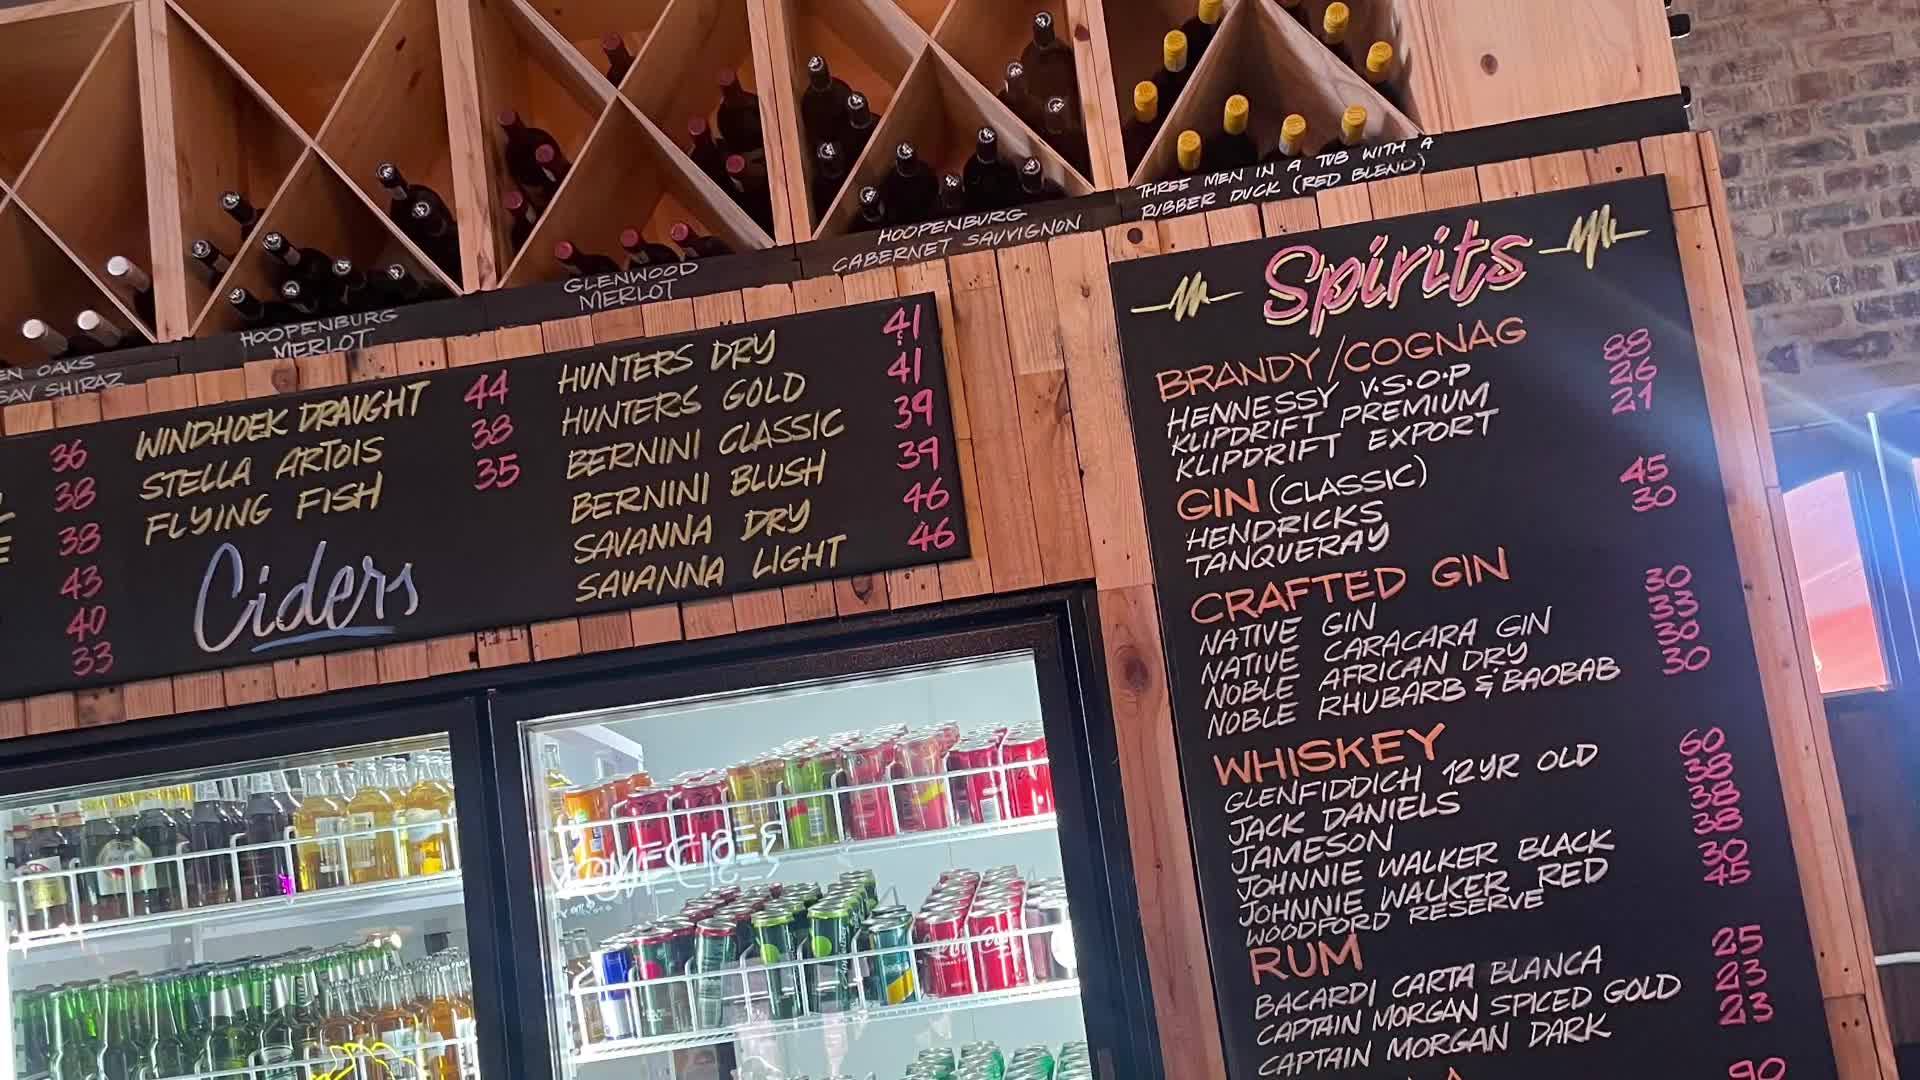 THREE MEN IN A TUB WITH A
RUBBER DUCK (RED BLEND)
HOOPENBURG
CABERNET SAUVIGNON
GLENWOOD
MERLOT
HOOPENBURG
MERLOT
OAKS
SAV SHIRAZ
36
38
38
43
40
33
WINDHOEK DRAUGHT 44
STELLA ARTOIS 38
FLYING FISH 35
Ciders
HUNTERS DRY 41
HUNTERS GOLD 41
BERNINI CLASSIC 39
BERNINI BLUSH 39
SAVANNA DRY 46
SAVANNA LIGHT 46
Spirits
BRANDY/COGNAG
HENNESSY V.S.O.P 88
KLIPDRIFT PREMIUM 26
KLIPDRIFT EXPORT 21
GIN (CLASSIC)
HENDRICKS 45
TANQUERAY 30
CRAFTED GIN
NATIVE GIN 30
NATIVE CARACARA GIN 33
NOBLE AFRICAN DRY 30
NOBLE RHUBARB & BAOBAB 30
WHISKEY
GLENFIDDICH 12YR OLD 60
JACK DANIELS 38
JAMESON 38
JOHNNIE WALKER BLACK 38
JOHNNIE WALKER RED 30
WOODFORD RESERVE 45
RUM
BACARDI CARTA BLANCA 25
CAPTAIN MORGAN SPICED GOLD 23
CAPTAIN MORGAN DARK 23
90